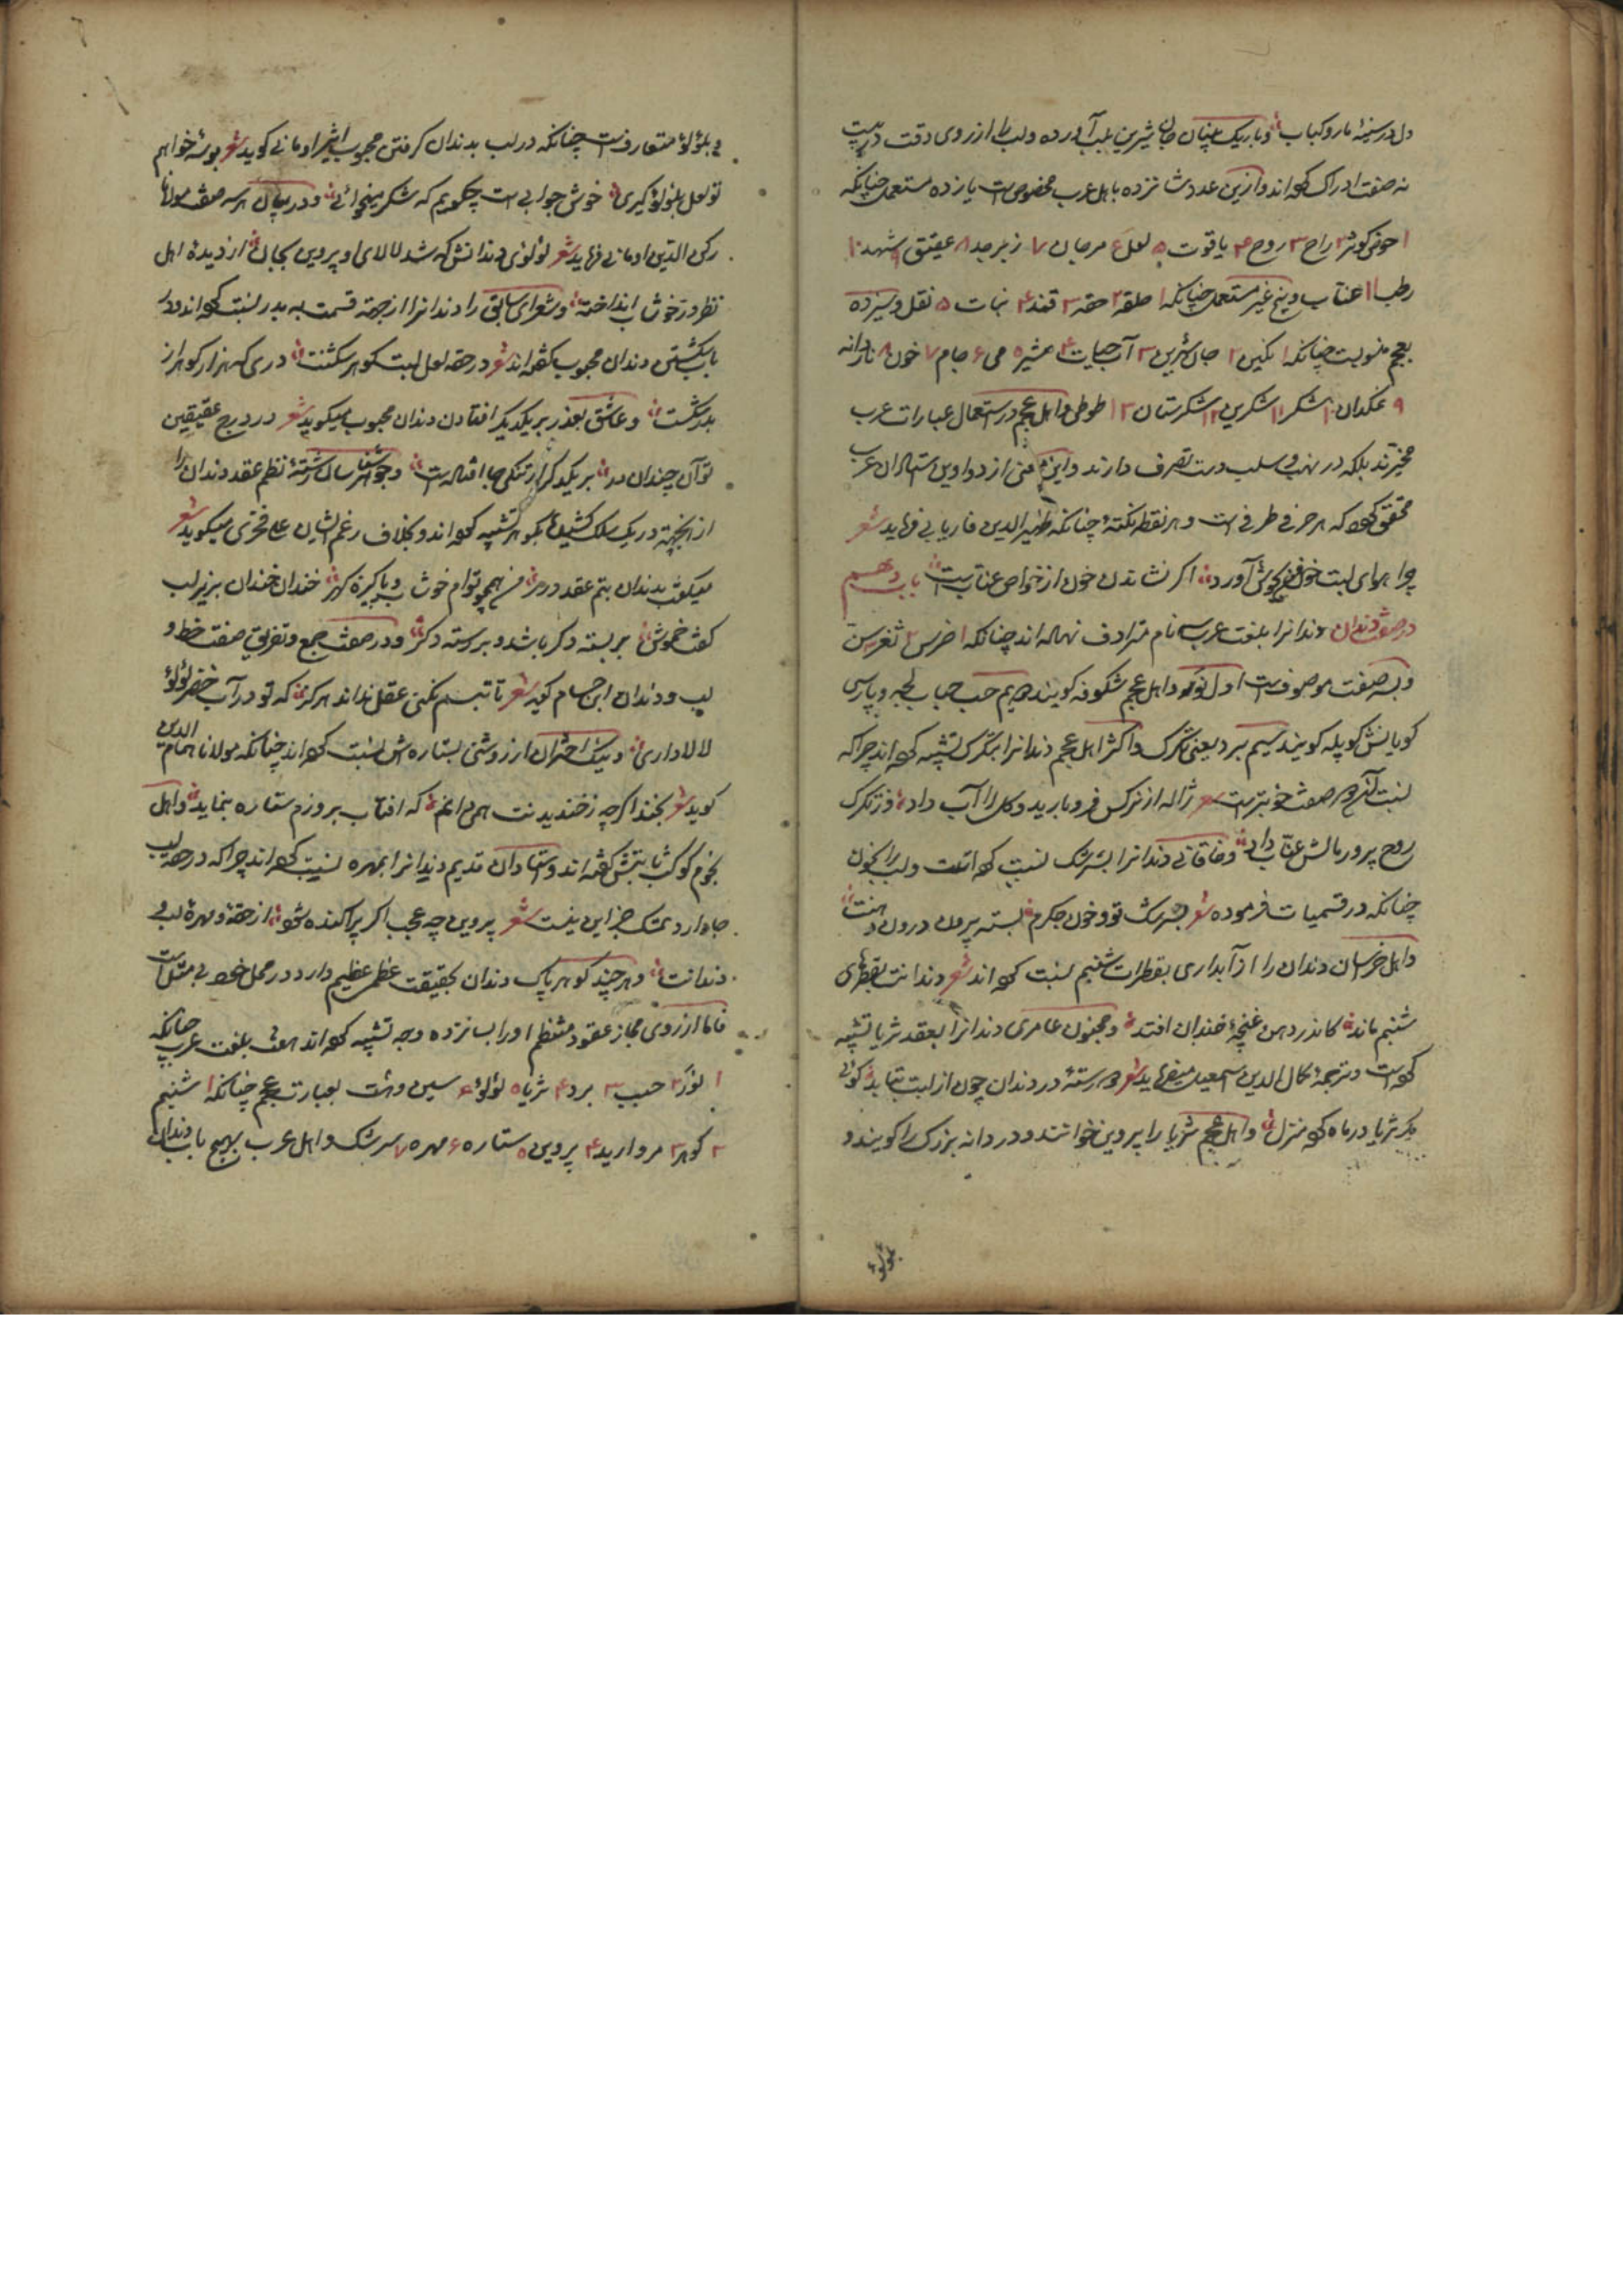 دل در سینهٔ ما رو کباب و باریک بینان جان شیرین بلب آورده و لب را از روی دقت
نه صفت ادراک کرده اند و ازین عدد شانزده باهل عرب مخصوص است یازده مستعمل چنانکه
۱ حوض کوثر ۲ راح ۳ روح ۴ یاقوت ۵ لعل ۶ مرجان ۷ زبرجد ۸ عقیق ۹ شهد ۱۰
رطب ۱۱ عناب و پنج غیر مستعمل چنانکه ۱ حلقه ۲ حقه ۳ قند ۴ نبات ۵ نقل و سیزده
بعجم منسوبست چنانکه ۱ نگین ۲ جان شیرین ۳ آب حیات ۴ ۵ می ۶ جام ۷ خون ۸ ناردانه
۹ نمکدان ۱۰ شکر ۱۱ شکرین ۱۲ شکرستان ۱۳ طوطی و اهل عجم در استعمال عبارات عرب
مخیرند بلکه در نهب و سلب دست تصرف دارند و این معنی از دواوین استادان عرب
محقق کرده که هر حرفی ظرفی است و هر نقطه نکتهٔ چنانکه ظهیر الدین فاریابی فرماید شعر
چرا هوای لبت خون من بجوش آورد اگر نشاندن خون از خواص عنابست باب دهم
در صفت دندان دندانرا بلغت عرب سه نام مترادف نهاده اند چنانکه ۱ ضرس ۲ ثغر ۳ سن
و بسه صفت موصوفست اول نور و اهل عجم شکوفه گویند دویم حبب حباب لجه و بپارسی
گویانش کوپله گویند سیم برد یعنی تگرگ و اکثر اهل عجم دندانرا بتگرگ تشبیه کرده اند چراکه
نسبت صفت خوبترست شعر ژاله از نرگس فرو بارید و گل را آب داد وز تگرگ
روح پرور مالش عناب داد و خاقانی دندانرا بسرشک نسبت کرده است و لب را بخون
چنانکه در قسمیات فرموده شعر بسرشک تو و خون جگرم بسته بیرون درون دهنت
و اهل خراسان دندان را از آبداری بقطرات شبنم نسبت کرده اند شعر دندانت بقطرهای
شبنم ماند کاندر دهن غنچهٔ خندان افتد و مجنون عامری دندانرا بعقد ثریا تشبیه
کرده است و ترجمهٔ کمال الدین اسمعیل میفرماید شعر رستهٔ در دندان چون از لبت بتابد گوئی
مگر ثریا در ماه کرده منزل و اهل عجم ثریا را پروین خوانند و دردانه بزرگ را گویند و
بلؤلؤ
بلؤلؤ متعارفست چنانکه در لب بدندان گرفتن محبوب اثیر اومانی گوید شعر بوسهٔ خواهم
تو لعل بلؤلؤ گیری خوش جوابی است چگویم که شکر میخوائی و در بیان هر سه صفت مولانا
رکن الدین اومانی فرماید شعر لؤلؤی دندانش که شد لالای او پروین بجان از دیدهٔ اهل
نظر در خوشاب انداخته و شعرای سابق را دندانرا از جهة قسمت به بدر نسبت کرده اند و در
باب شکستن دندان محبوب گفته اند شعر در حقه لعل لبت گوهر شکست دری که هزار گوهر از
بدر شکست و عاشق بعذر بر یکدیگر افتادن دندان محبوب میگوید شعر در درج عقیقین
تو آن چندان در بر یکدگر از تنگی جا افتادست و جوهر شناسان رشتهٔ نظم عقد دندان را
از آنجهة در یک سلک کشیده بگوهر تشبیه کرده اند و بخلاف رغم ایشان فخری میگوید شعر
میگفت بدندان بتم عقد درر من همچو توام خوشاب و پاکیزه گهر خندان خندان بزیر لب
گفت خموش بر بسته دگر باشد و بر رسته دگر و در صفت جمع و تفریق صفت خط و
لب و دندان ابن حسام گوید شعر تا تبسم نکنی عقل نداند هرگز که تو در آب خضر لؤلؤ
لالا داری و نیک اختران از روشنی بستاره اش نسبت کرده اند چنانکه مولانا همام الدین
گوید شعر بخند اگرچه ز خندیدنت همی دانم که افتاب بروزم ستاره بنماید و اهل
نجوم کوکب ثابتش گفته اند و استادان قدیم دندانرا بمهره نسبت کرده اند چراکه در حقه لب
جا دارد شک جز این نیست شعر پروین چه عجب اگر پراکنده شود از حقهٔ و مهرهٔ لب و
دندانت و هر چند گوهر پاک دندان بحقیقت عظم عظیم دارد در محل خود بی مثل است
فاما از روی مجاز عقود منتظم او را بپانزده وجه تشبیه کرده اند هفت بلغت عرب چنانکه
۱ نور ۲ حبب ۳ برد ۴ ثریا ۵ لؤلؤ ۶ سین و هشت بعبارت عجم چنانکه ۱ شبنم
۲ گوهر ۳ مروارید ۴ پروین ۵ ستاره ۶ مهره ۷ سرشک و اهل عرب بهیچ باب دندان